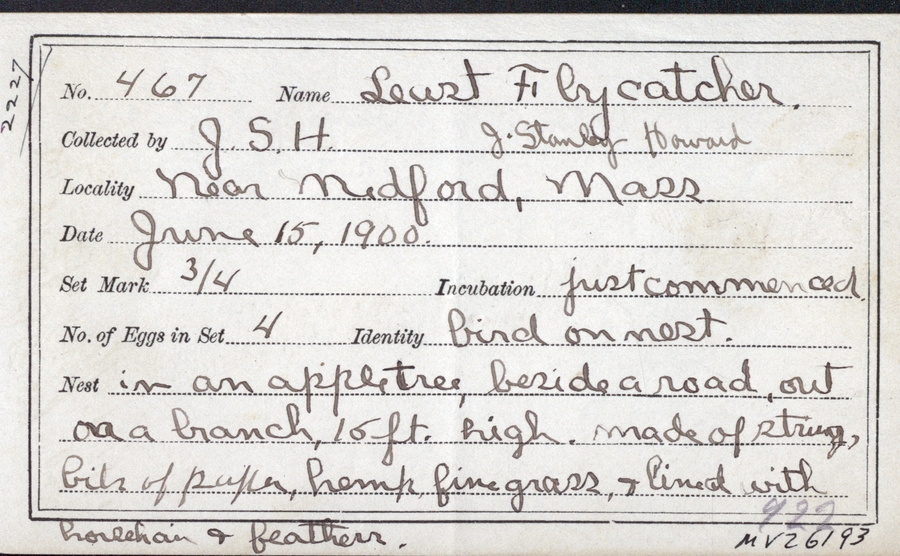 2227
No. 467 Name Least Flycatcher.
Collected by J. S. H. J. Stanley Howard
Locality Near Medford, Mass.
Date June 15, 1900.
Set Mark 3/4 Incubation just commenced
No. of Eggs in Set 4 Identity bird on nest.
Nest in an appletree, beside a road, out
on a branch, 15 ft. high. made of string,
bits of paper, hemp, fine grass, & lined with
horsehair & feathers.
922
MVZ6193